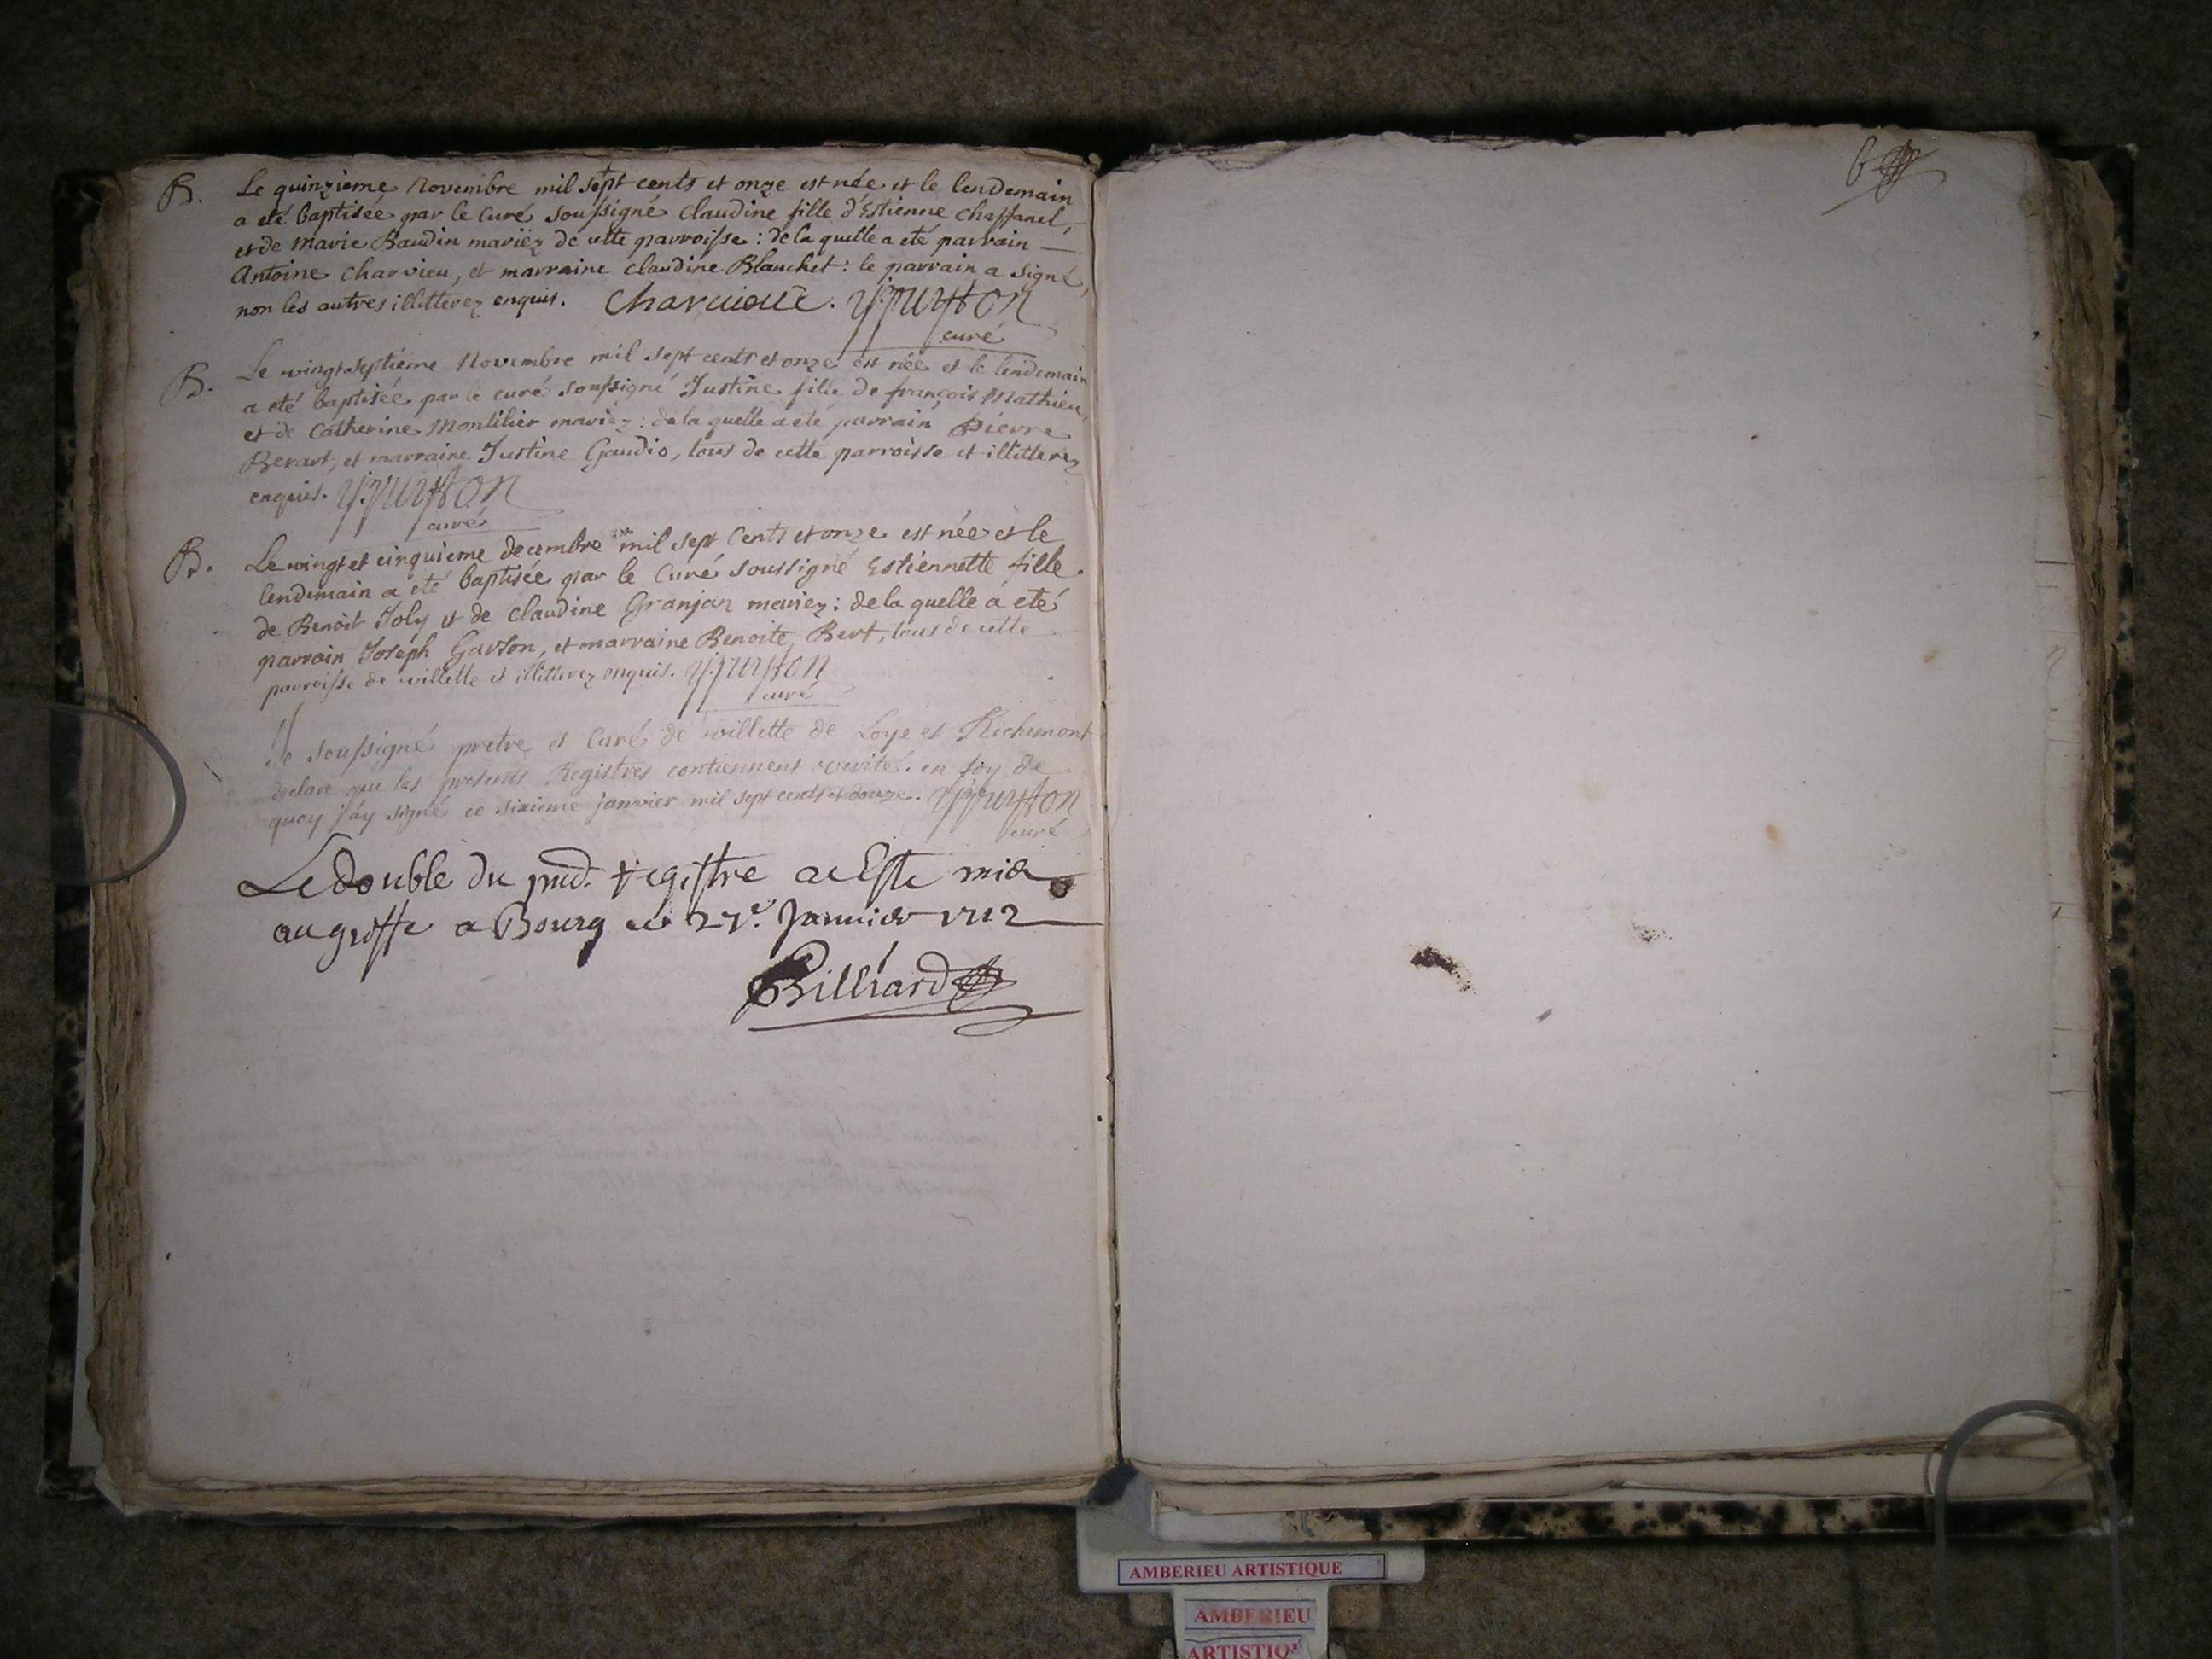 B. Le quinzieme Novembre mil sept cents et onze est née et le lendemain
a eté baptisée par le Curé soussigné Claudine fille d'Estienne Chaffanel,
et de Marie Baudin mariéz de cette parroisse : de la quelle a eté parrain
Antoine Charvieu, et marraine Claudine Blanchet : le parrain a signé,
non les autres illitterez enquis. Charuieue.
curé
B. Le vingt septieme Novembre mil sept cents et onze est née et le lendemain
a eté baptisée par le curé soussigné Justine fille de françois Mathieu,
et de Catherine Montilier mariez : de la quelle a eté parrain Pierre
Berart, et marraine Justine Gaudio, tous de cette parroisse et illitterez
enquis.
curé
B. Le vingt et cinquieme decembre mil sept Cents et onze est née et le
lendemain a eté baptisée par le Curé soussigné Estiennette fille
de Benoit Joly et de Claudine Granjan mariez : de la quelle a eté
parrain Joseph Garson, et marraine Benoite Bert, tous de cette
parroisse de villette et illitterez enquis.
curé
Je soussigné pretre et Curé de villette de Loye et Richemont
declare que les presents Registres contiennent verité. en foy de
quoy j'ay signé ce sixieme janvier mil sept cents et douze.
curé
Le double du pnt. registre a Esté mis
au greffe a Bourg ce 27e. Januier 1712
Billiard
6
AMBERIEU ARTISTIQUE
AMBERIEU
ARTISTIQ